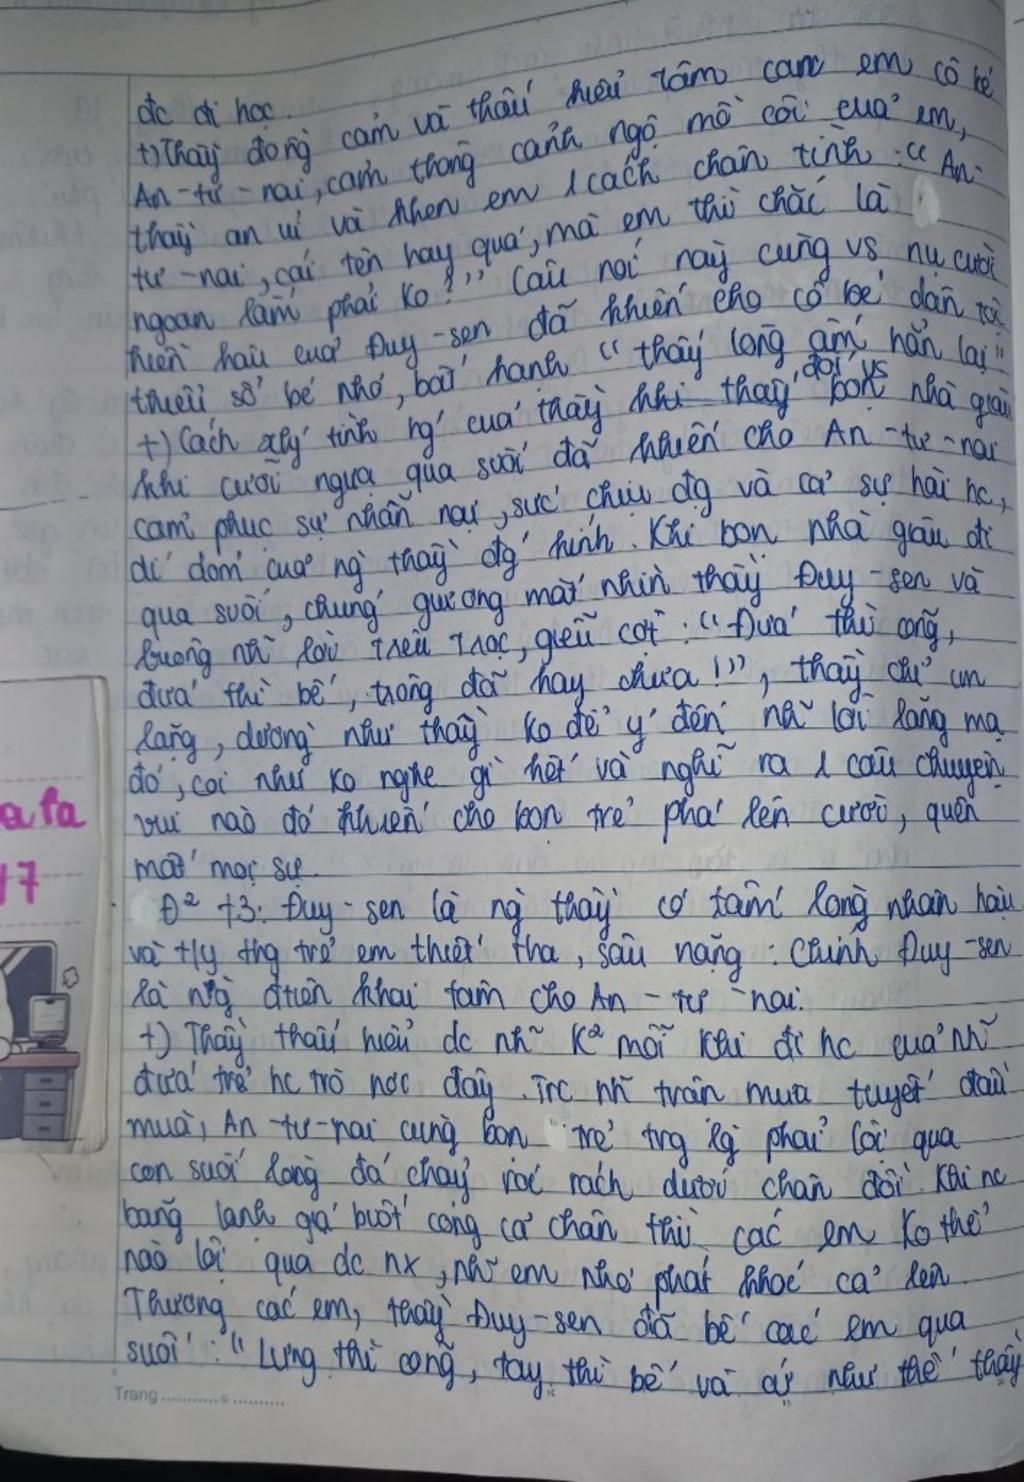 đc đi học.
+) Thầy đồng cảm và thấu hiểu tâm can em cô bé
An-tư-nai, cảm thông cảnh ngộ mồ côi của em,
thầy an ủi và khen em 1 cách chân tình: "An-
tư-nai, cái tên hay quá, mà em thì chắc là
ngoan lắm phải ko?" Câu nói này cùng vs nụ cười
hiền hậu của Đuy-sen đã khiến cho cô bé dân tộc
thiểu số bé nhỏ, bất hạnh "thấy lòng ấm hẳn lại"
+) Cách xlý tình hg của thầy khi thầy đối vs bọn nhà giàu
khi cưỡi ngựa qua suối đã khiến cho An-tư-nai
cảm phục sự nhẫn nại, sức chịu đg và cả sự hài hc,
dí dỏm của ng thầy đg kính. Khi bọn nhà giàu đi
qua suối, chúng gương mắt nhìn thầy Đuy-sen và
buông nh~ lời trêu trọc, giễu cợt: "Đứa thì cõng,
đứa thì bế, trông đã hay chưa!", thầy chỉ im
lặng, dường như thầy ko để ý đến nh~ lời lăng mạ
đó, coi như ko nghe gì hết và nghĩ ra 1 câu chuyện
vui nào đó khiến cho bọn trẻ phá lên cười, quên
mất mọi sự.
Đ² t3: Đuy-sen là ng thầy có tấm lòng nhân hậu
và t/y thg trẻ em thiết tha, sâu nặng: Chính Đuy-sen
là ng đtiên khai tâm cho An-tư-nai.
+) Thầy thấu hiểu dc nh~ K² mỗi khi đi hc của nh~
đứa trẻ hc trò nơi đây. Trc nh~ trận mưa tuyết đầu
mùa, An-tư-nai cùng bọn trẻ trg lg phải lội qua
con suối lòng đá chảy róc rách dưới chân đồi. Khi nc
băng lạnh giá buốt cóng cả chân thì các em ko thể
nào lội qua dc nx, nh~ em nhỏ phát khóc cả lên.
Thương các em, thầy Đuy-sen đã bế các em qua
suối: "Lưng thì cõng, tay thì bế và cứ như thế thầy
Trang
a la
17